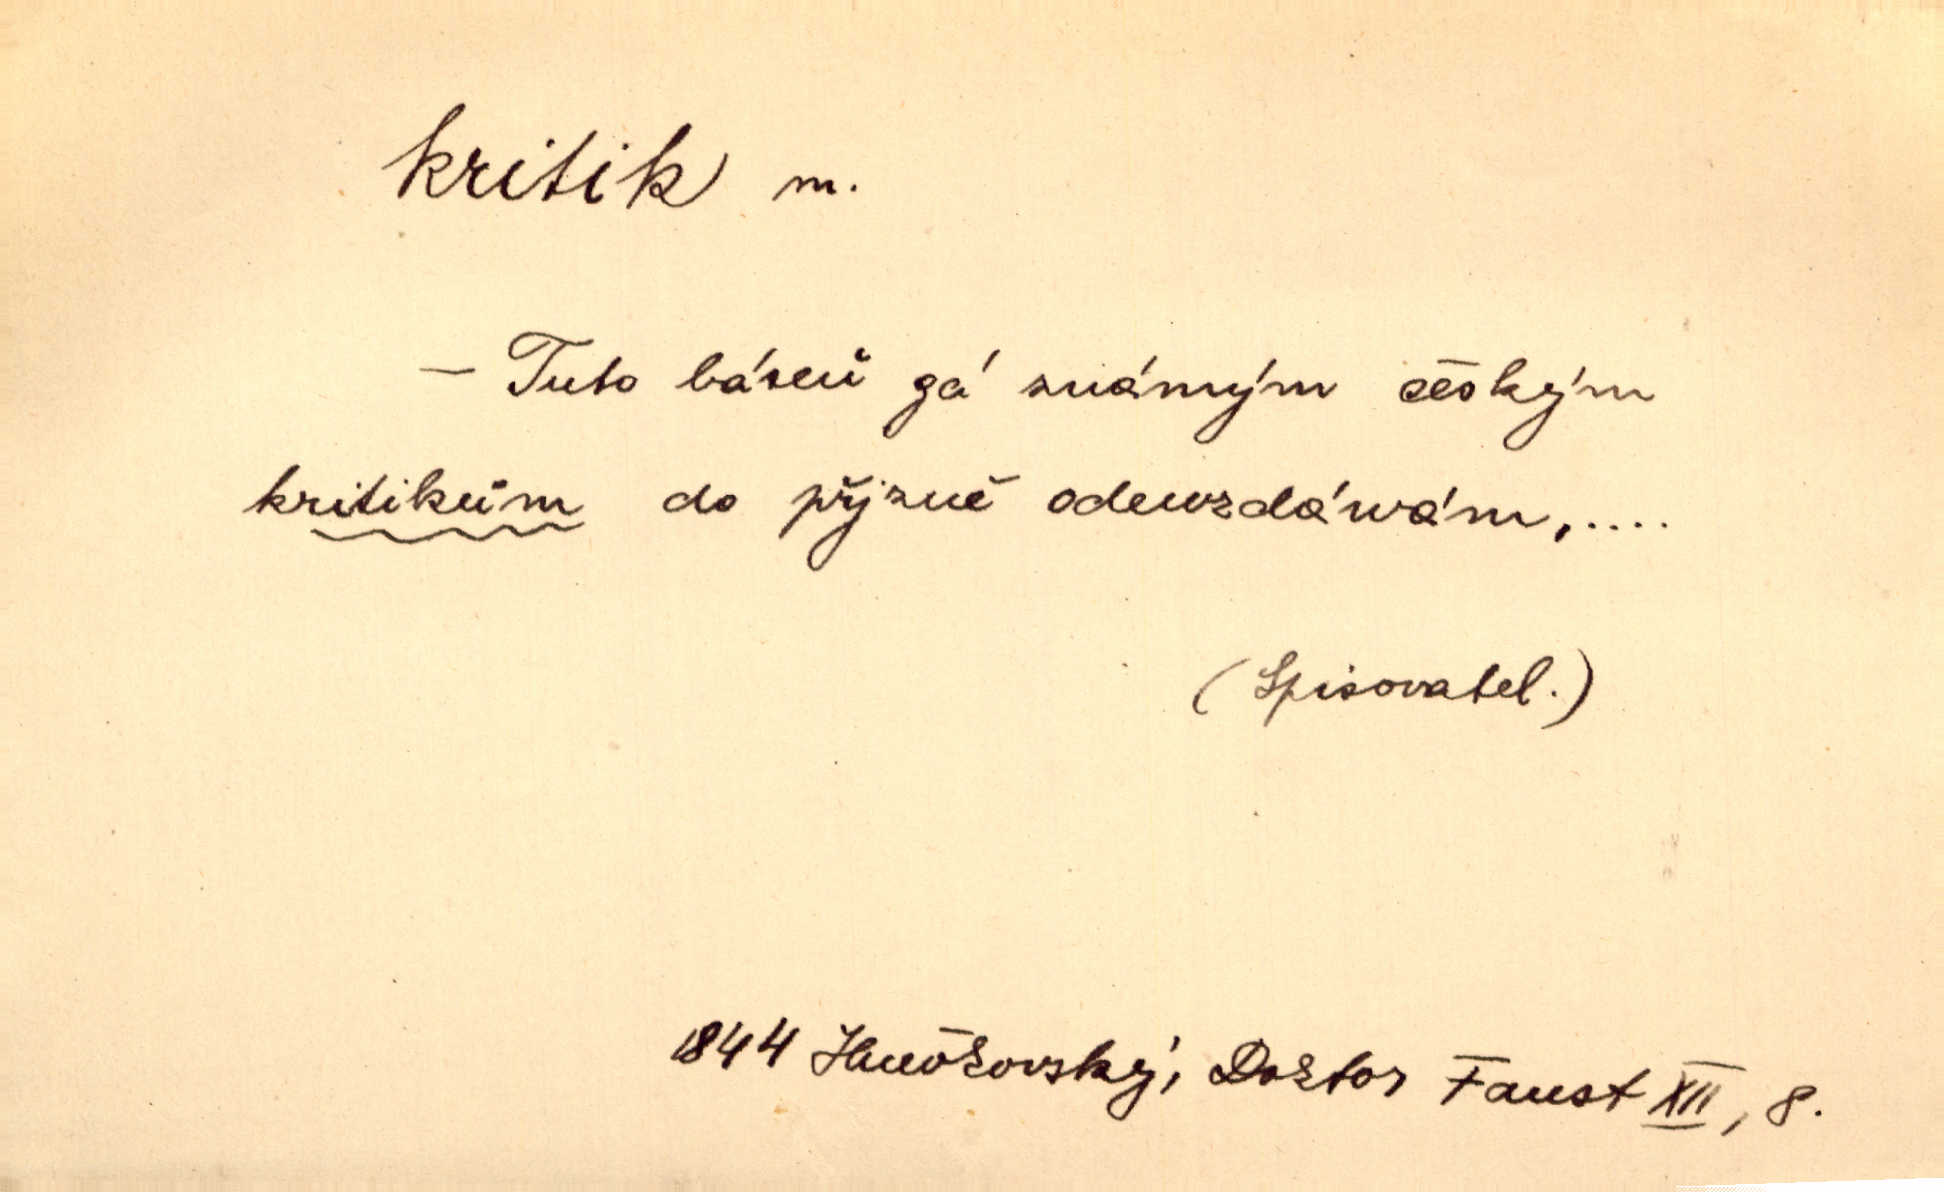 kritik m.
– Tuto báseň gá známým českým
kritikům do přjzně odewzdáwám,....
(Spisovatel.)
1844 Hněvkovský, Doktor Faust XII, 8.